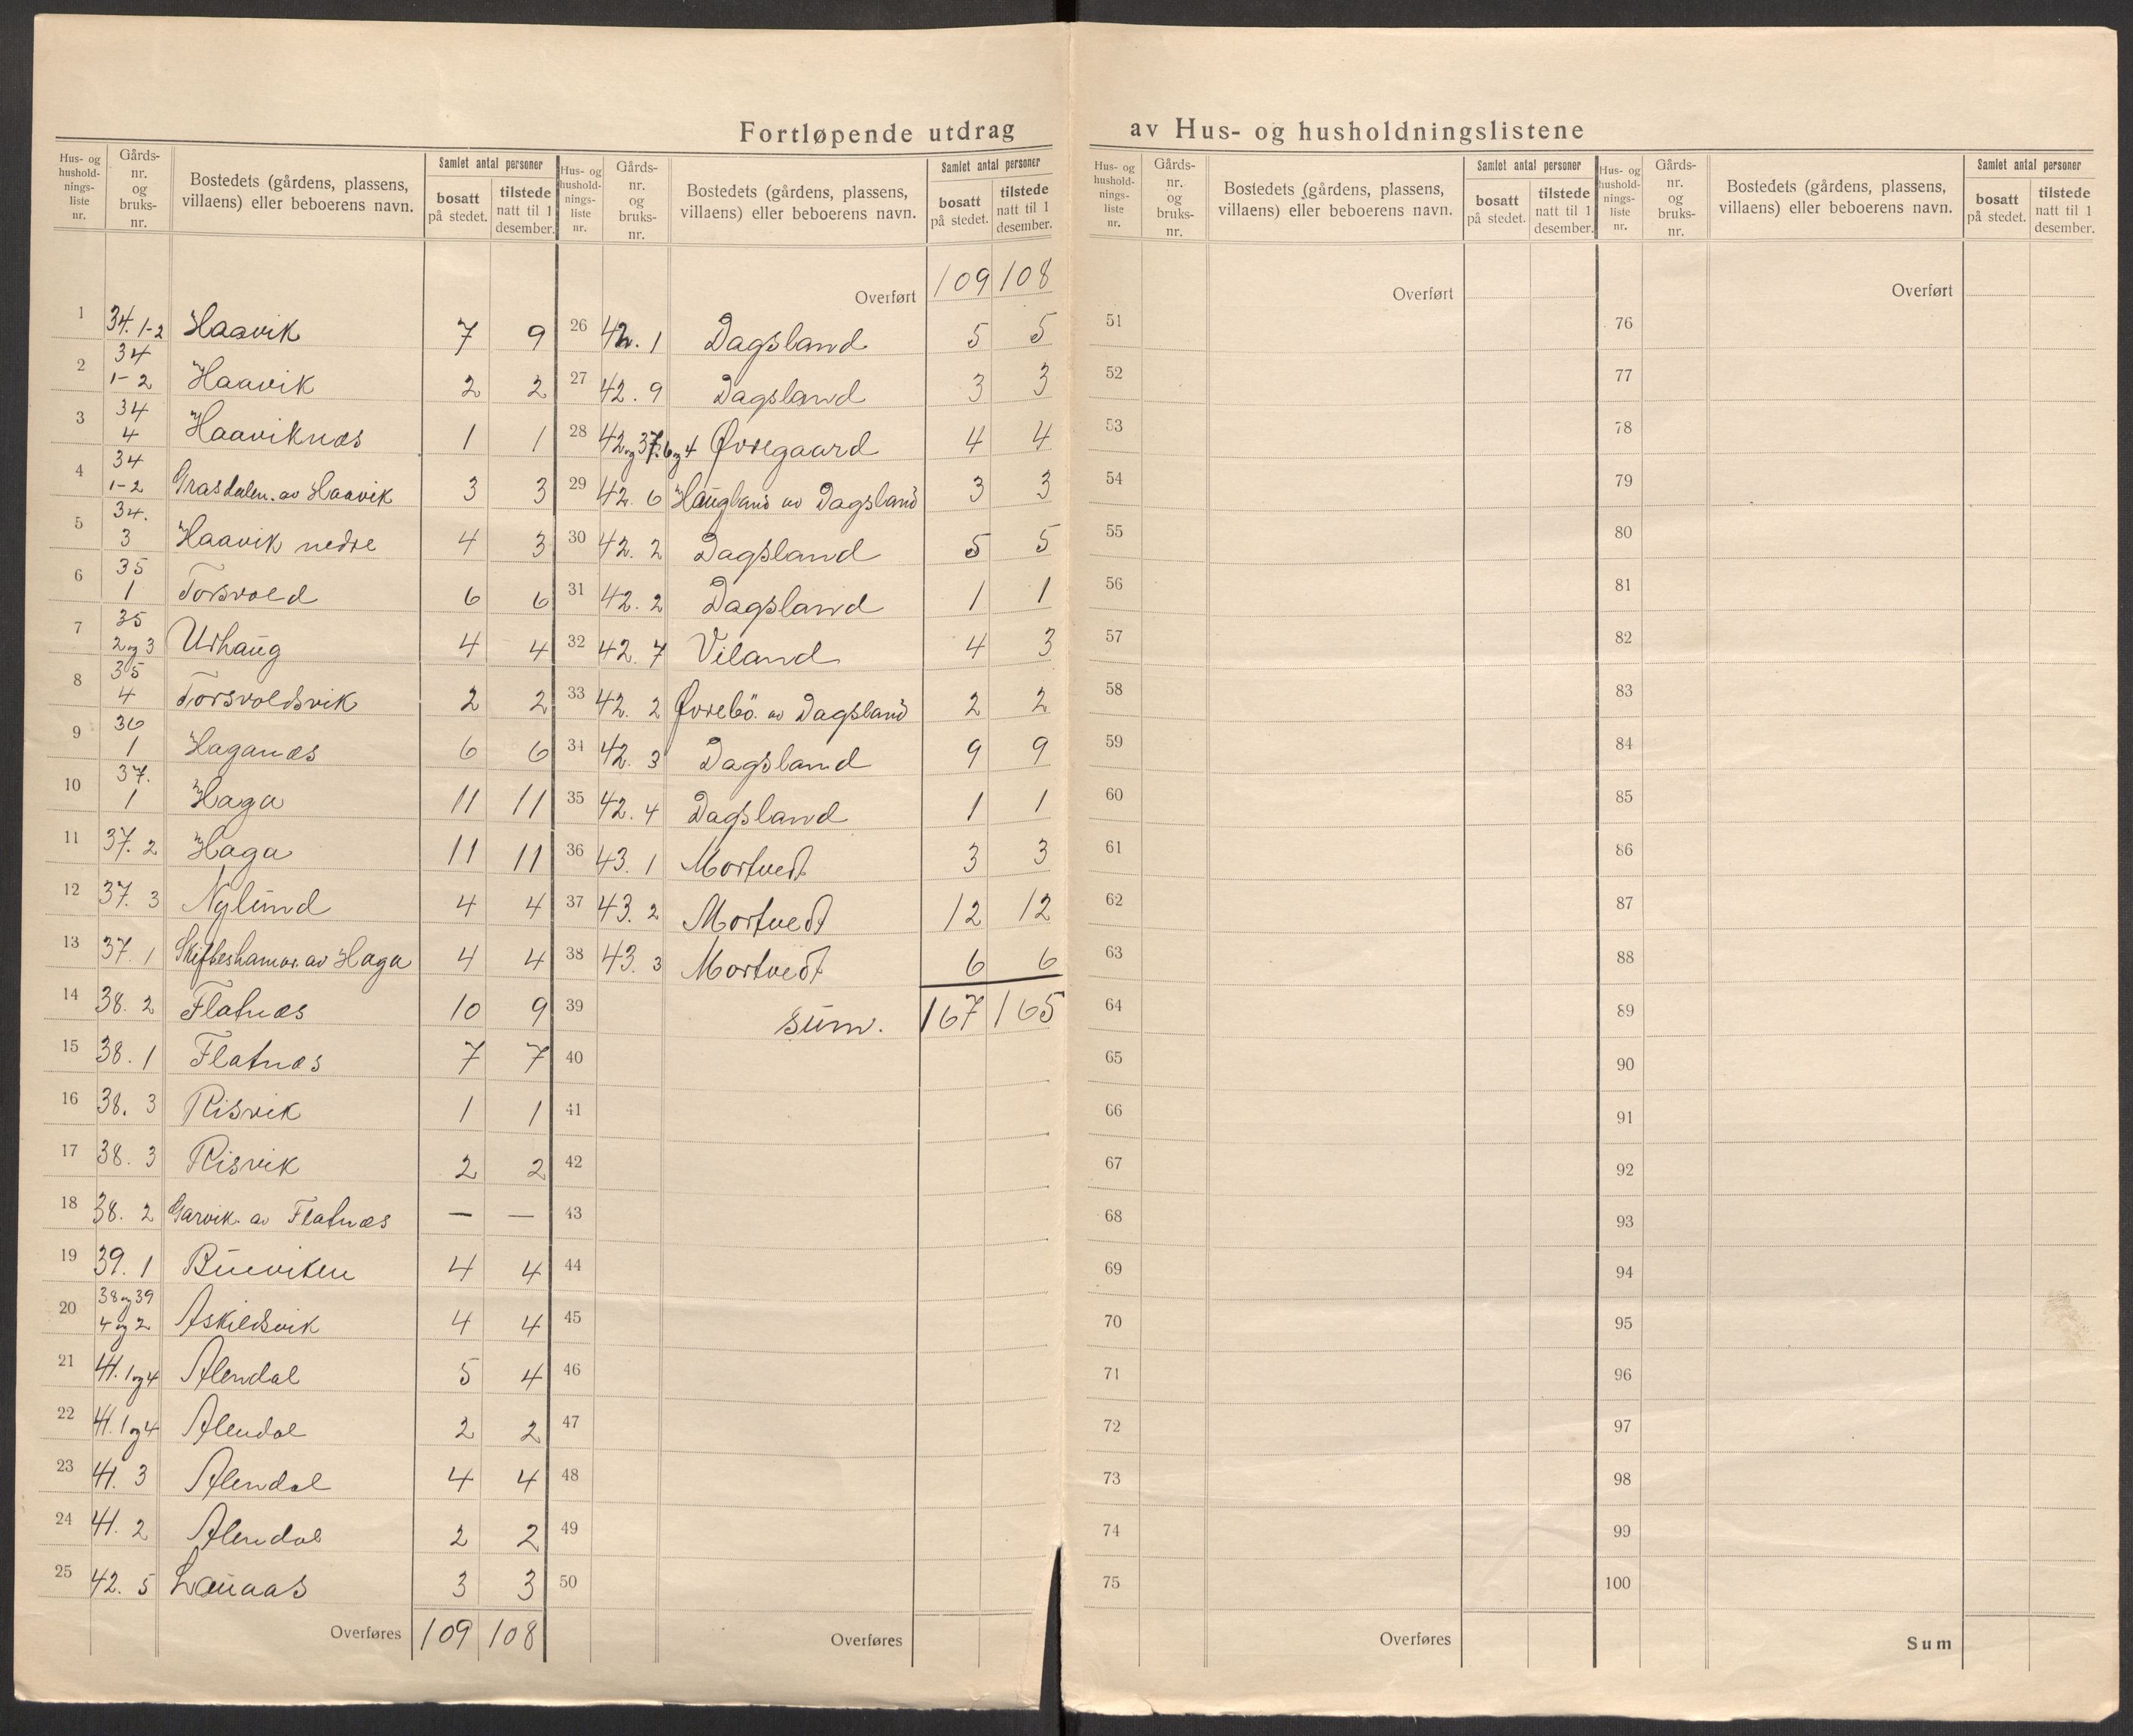 Fortløpende utdrag av Hus- og husholdningslistene
Hus- og hushold-nings-liste nr. | Gårds-nr. og bruks-nr. | Bostedets (gårdens, plassens, villaens) eller beboerens navn. | Samlet antal personer | bosatt på stedet. | tilstede natt til 1 desember.
1 34. 1-2 Haavik 7 9
2 34 1-2 Haavik 2 2
3 34 4 Haaviknæs 1 1
4 34 1-2 Grasdalen. av Haavik 3 3
5 34. 3 Haavik nedre 4 3
6 35 1 Torsvold 6 6
7 35 2 og 3 Urhaug 4 4
8 35 4 Torsvoldsvik 2 2
9 36 1 Haganæs 6 6
10 37. 1 Haga 11 11
11 37. 2 Haga 11 11
12 37. 3 Nylund 4 4
13 37. 1 Skifteshamar. av Haga 4 4
14 38. 2 Flatnæs 10 9
15 38. 1 Flatnæs 7 7
16 38. 3 Risvik 1 1
17 38. 3 Risvik 2 2
18 38. 2 Garvik. av Flatnæs — —
19 39. 1 Bueviken 4 4
20 38 og 39 4 og 2 Askildsvik 4 4
21 41. 1 og 4 Alendal 5 4
22 41. 1 og 4 Alendal 2 2
23 41. 3 Alendal 4 4
24 41. 2 Alendal 2 2
25 42. 5 Lauaas 3 3
Overføres 109 108
Hus- og hushold-nings-liste nr. | Gårds-nr. og bruks-nr. | Bostedets (gårdens, plassens, villaens) eller beboerens navn. | Samlet antal personer | bosatt på stedet. | tilstede natt til 1 desember.
Overført 109 108
26 42. 1 Dagsland 5 5
27 42. 9 Dagsland 3 3
28 42 og 37. 6 og 4 Øvregaard 4 4
29 42. 6 Haugland av Dagsland 3 3
30 42. 2 Dagsland 5 5
31 42. 2 Dagsland 1 1
32 42. 7 Viland 4 3
33 42. 2 Øvrebö. av Dagsland 2 2
34 42. 3 Dagsland 9 9
35 42. 4 Dagsland 1 1
36 43. 1 Mortvedt 3 3
37 43. 2 Mortvedt 12 12
38 43. 3 Mortvedt 6 6
39 sum. 167 165
40
41
42
43
44
45
46
47
48
49
50
Overføres
Hus- og hushold-nings-liste nr. | Gårds-nr. og bruks-nr. | Bostedets (gårdens, plassens, villaens) eller beboerens navn. | Samlet antal personer | bosatt på stedet. | tilstede natt til 1 desember.
Overført
51
52
53
54
55
56
57
58
59
60
61
62
63
64
65
66
67
68
69
70
71
72
73
74
75
Overføres
Hus- og hushold-nings-liste nr. | Gårds-nr. og bruks-nr. | Bostedets (gårdens, plassens, villaens) eller beboerens navn. | Samlet antal personer | bosatt på stedet. | tilstede natt til 1 desember.
Overført
76
77
78
79
80
81
82
83
84
85
86
87
88
89
90
91
92
93
94
95
96
97
98
99
100
Sum